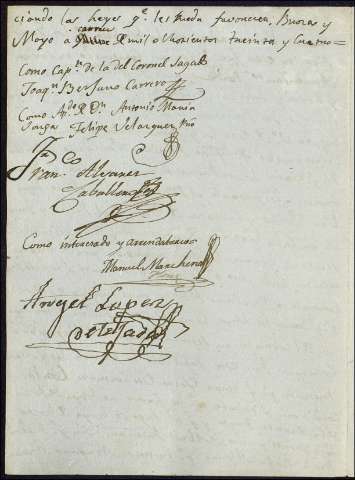 ciendo las leyes q.e les pueda favorecer, Bornos y
Mayo a catorce de mil ochocientos treinta y cuatro=
Como Cap.n de la del Coronel
Joaq.n Bersano Carrero
Como Ap.do de D.n Antonio María
Jorge Felipe Velazquez
Fran.co Alvarez
Caballero
Como interesado y arrendatario
Manuel Marchena
Angel Lopez
de Tejada